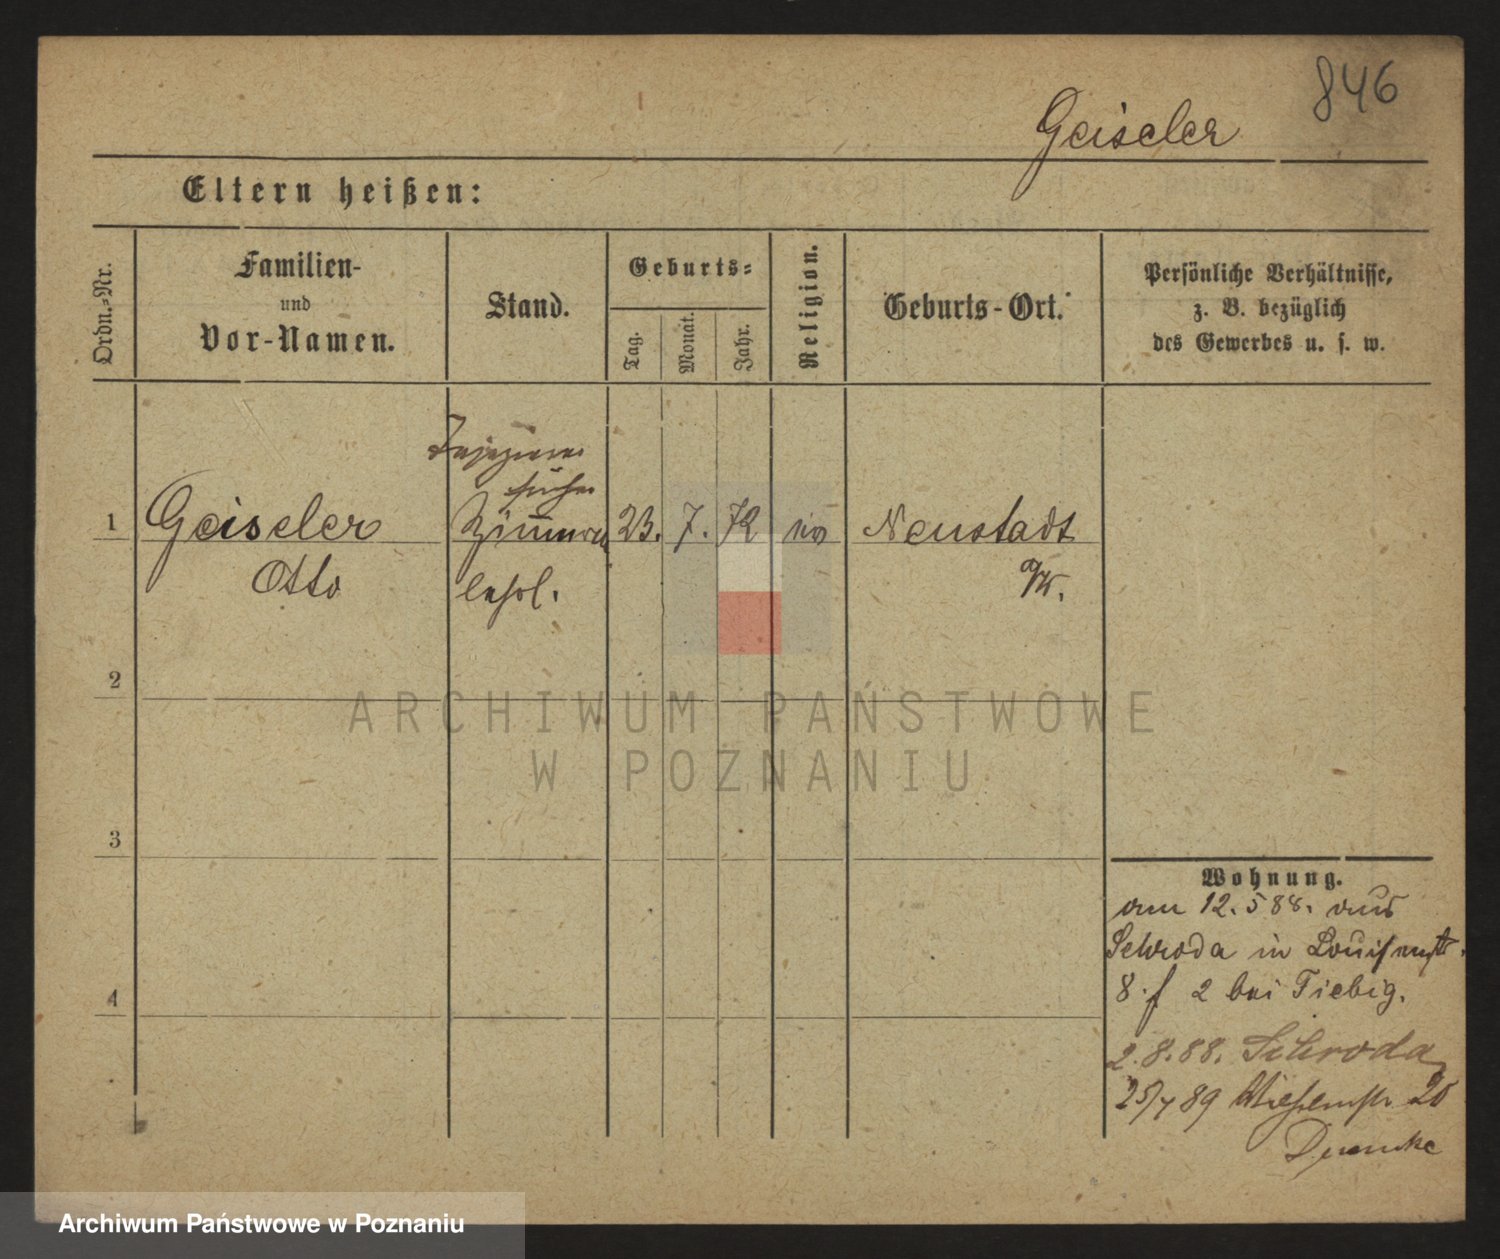 846
Geiseler
Eltern heißen:
Ordn.-Nr.
Familien-
und
Vor-Namen.
Stand.
Geburts-
Tag.
Monat.
Jahr.
Religion.
Geburts-Ort.
Persönliche Verhältnisse,
z. B. bezüglich
des Gewerbes u. s. w.
1
Geiseler
Otto
Zimmer
lehrl.
23.
7.
72
Neustadt
a/W.
2
3
4
ARCHIWUM PAŃSTWOWE
W POZNANIU
Wohnung.
am 12. 5 88. aus
Schroda in Louisenstr.
8. f 2 bei Fiebig.
2.8.88. Schroda
25/7 89 20
Archiwum Państwowe w Poznaniu